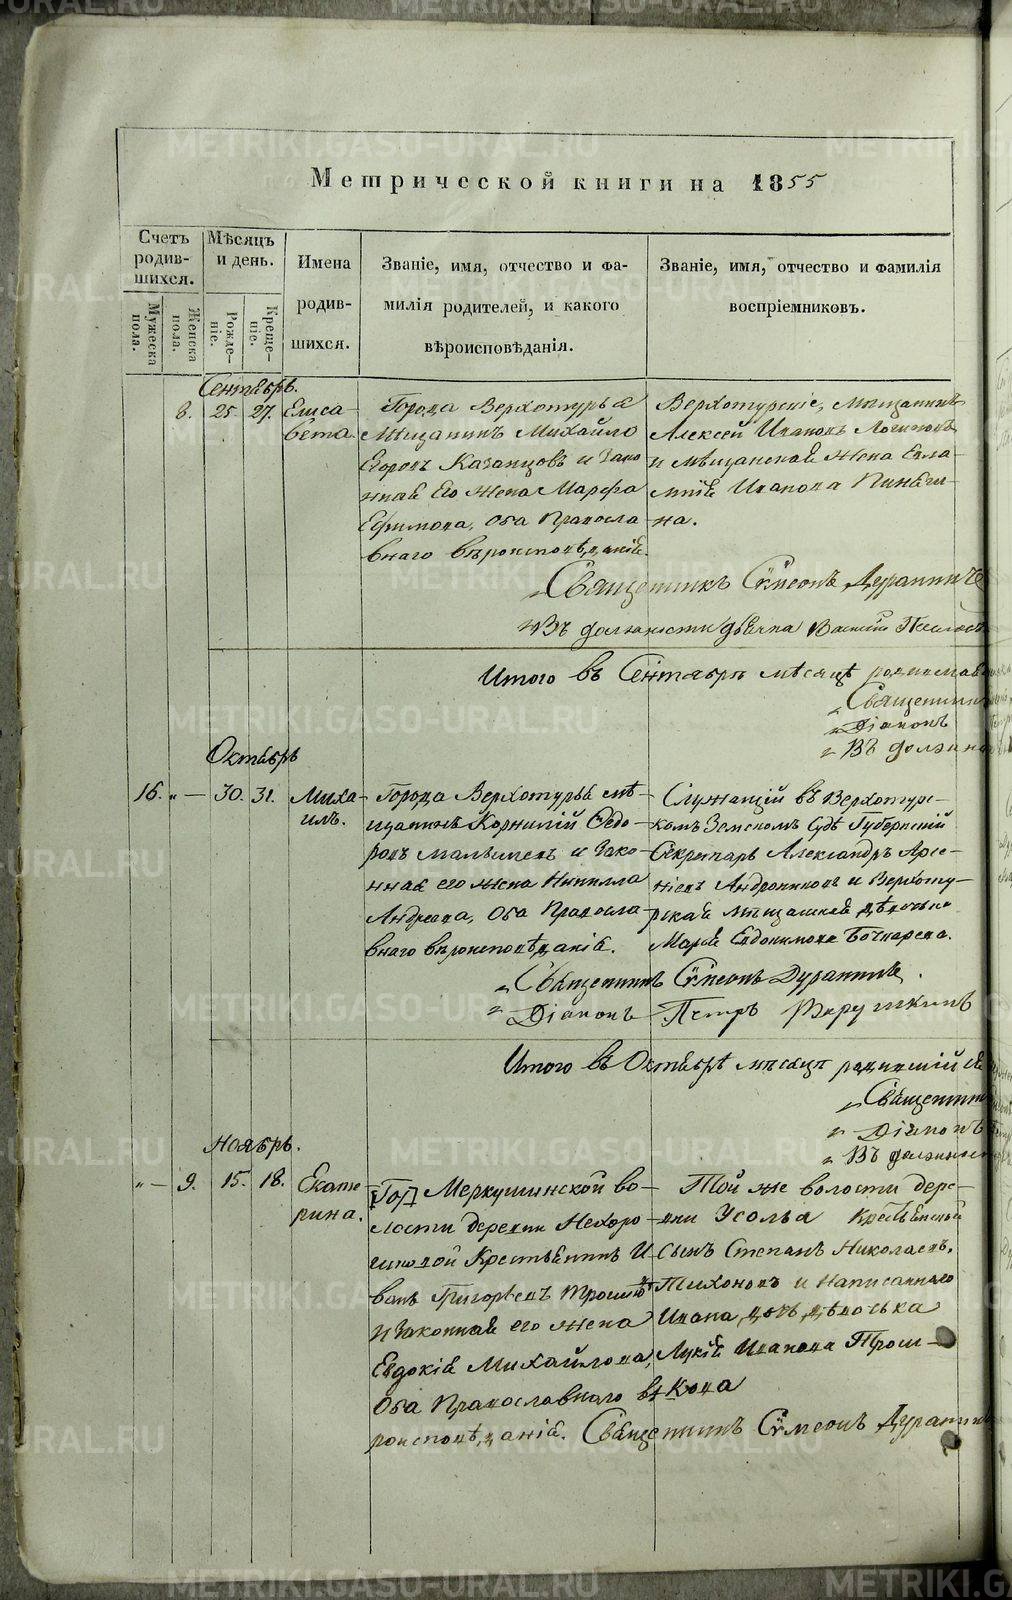 Метрической книги на 1855
Счетъ родив-шихся.
Мужеска пола.
Женска пола.
Мѣсяцъ и день.
Рожде-ніе.
Креще-ніе.
Имена
родив-
шихся.
Званіе, имя, отчество и фа-
милія родителей, и какого
вѣроисповѣданія.
Званіе, имя, отчество и фамилія
воспріемниковъ.
Сентябрь.
8. 25. 27. Елиса-
вета.
Города Верхотурья
Мѣщанинъ Михайло
Егоровъ Казанцовъ и Зако
нная Его жена Марфа
Ефимова, Оба Правосла
внаго вѣроисповѣданія.
Верхотурскіе, Мѣщанинъ
Алексей Ивановъ Логиновъ
и мѣщанская жена Евла-
мпія Иванова Пинѣги-
на.
Священникъ Сѵмеонъ
Въ должности дьячка Василій
Итого въ Сентябрѣ мѣсяцѣ
Священникъ
Діаконъ
Въ должно
Октябрь
16. „ — 30. 31. Миха-
илъ.
Города Верхотурья мѣ
щанинъ Корнилій Ѳедо-
ровъ и Зако-
нная его жена Нинилла
Андреева, Оба Правосла
внаго вѣроисповѣданія.
Служащій въ Верхотурс-
комъ Земскомъ Судѣ Губернскій
Секретарь Александръ Арсе-
ніевъ Андрониковъ и Верхоту-
рская мѣщанская дѣвочька
Марья Евдокимова Бочкарева.
Священникъ Сѵмеонъ
Діаконъ Петръ
Итого въ Октябрѣ мѣсяцѣ
Священник
Діаконъ
Въ должност
Ноябрь.
„ — 9. 15. 18. Екате-
рина.
[Гор] Меркушинской во-
лости деревни Нехоро-
шковой Крестьянинъ И
ванъ Григорьевъ
и Законная его жена
Евдокія Михайлова,
Оба Православнаго вѣ
роисповѣданія.
Той же волости дере-
вни Усолья Крестьянскій
Сынъ Степанъ Николаевъ
Тихоновъ и Написаннаго
Ивана, дочь, дѣвоська
Лукія Иванова Трош-
кова
Священникъ Сѵмеонъ
METRIKI.GASO-URAL.RU